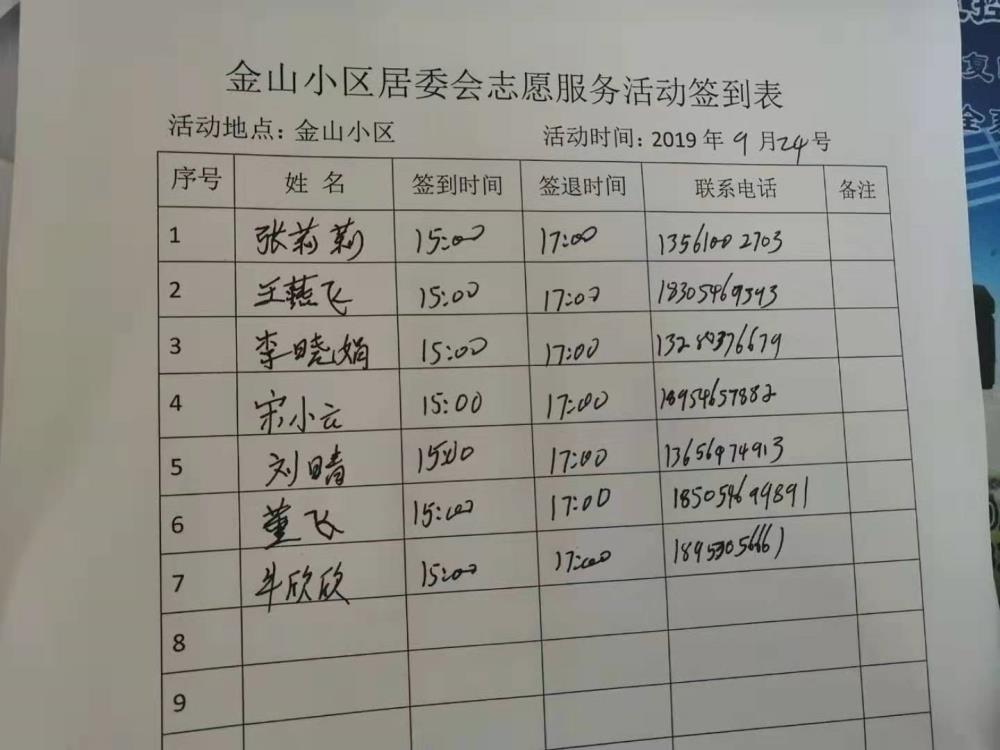 金山小区居委会志愿服务活动签到表
活动地点：金山小区 活动时间：2019 年 9 月 24 号
序号 姓 名 签到时间 签退时间 联系电话 备注
1 张莉莉 15:00 17:00 13561002703
2 王燕飞 15:00 17:00
3 李晓娟 15:00 17:00
4 宋小云 15:00 17:00 18954657882
5 刘晴 15:00 17:00
6 董飞 15:00 17:00 185054699891
7 牛欣欣 15:00 17:00
8
9